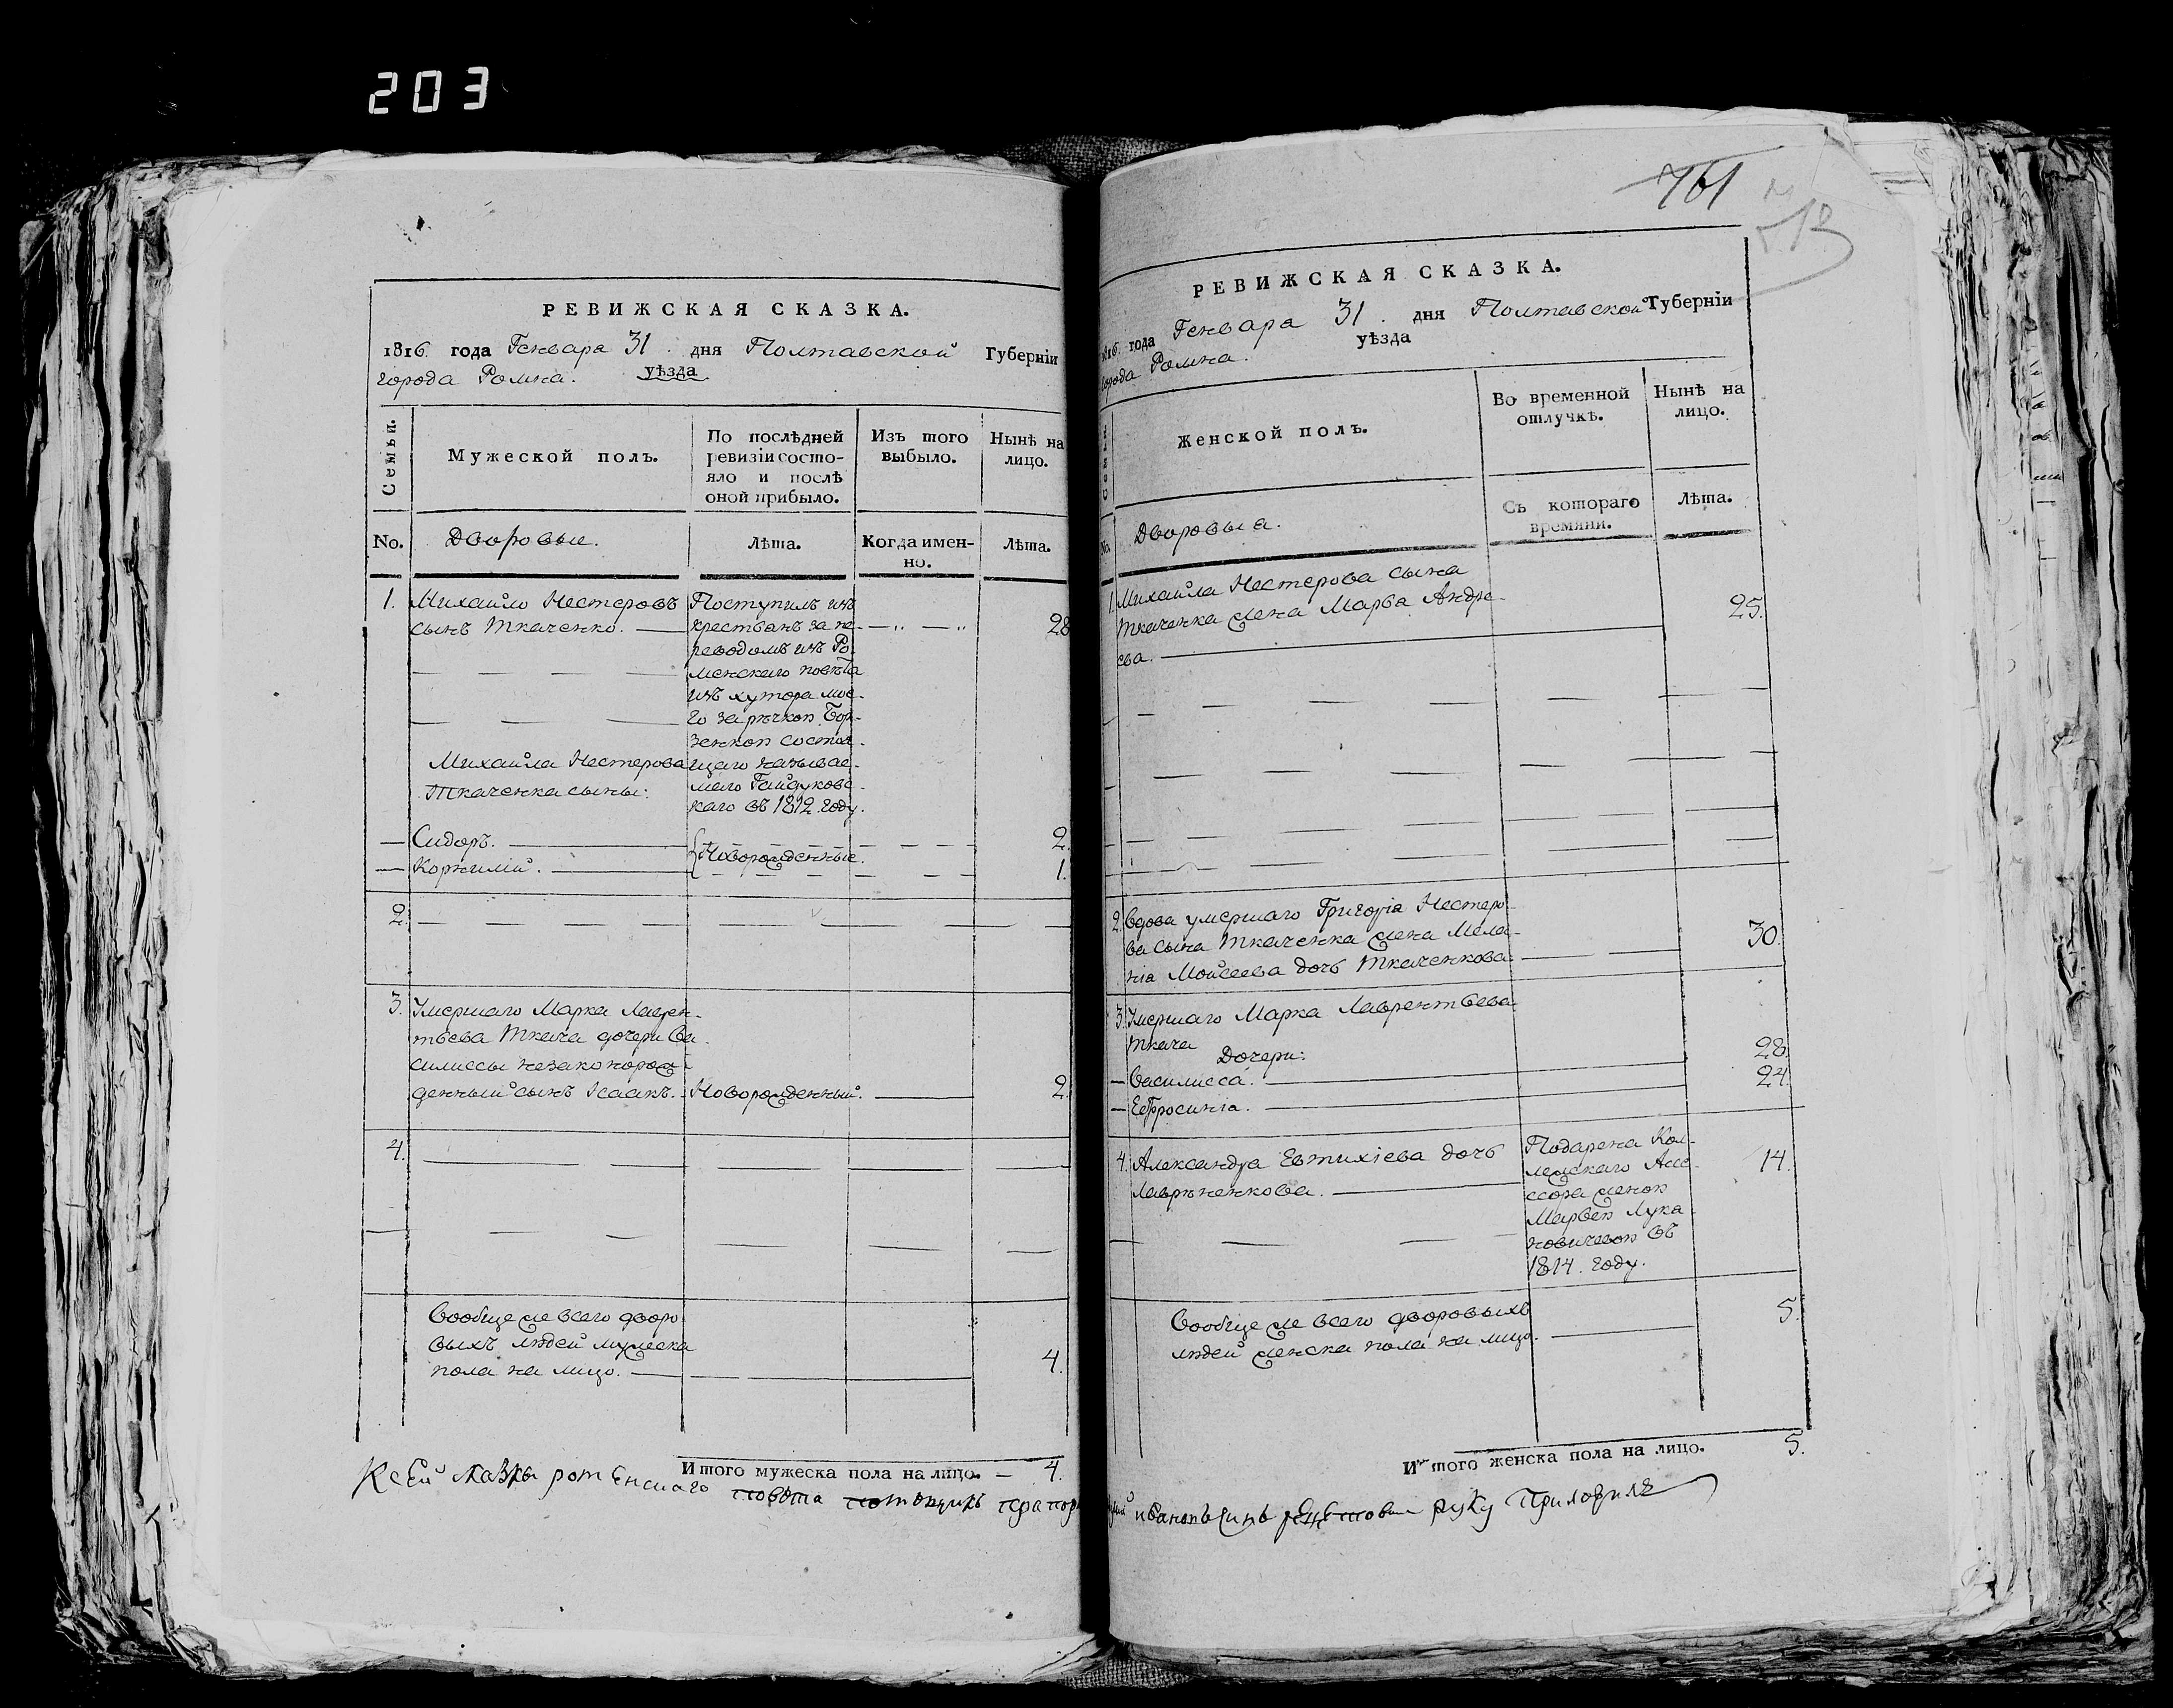 203
РЕВИЖСКАЯ СКАЗКА.
1816. года Генваря 31. дня Полтавской Губерніи
города Ромна. уѣзда
Семьи.
Мужеской полъ.
По послѣдней
ревизіи состо-
яло и послѣ
оной прибыло.
Изъ того
выбыло.
Нынѣ на
лицо.
No.
Дворовыи.
Лѣта.
Когда имен-
но.
Лѣта.
1. Михайло Нестеровъ
сынъ Ткаченко.
Поступилъ изъ
крестьянъ за пе-
реводомъ изъ Ро-
менского повѣта
изъ хутора мое-
го за рѣчкою Бор-
зенкою состоя-
щаго называе-
маго Гайдуковс-
каго въ 1812. году.
28
Михайла Нестерова
Ткаченка сыны:
Сидоръ. 2.
Корнилій. Новорожденные. 1.
2.
3. Умершаго Марка Лаврен-
тьева Ткача дочери Ва-
силиссы незаконорож-
денный сынъ Исаакъ. Новорожденный. 2.
4.
Вообще же всего дворо-
выхъ людей мужеска
пола на лицо. 4.
Итого мужеска пола на лицо. — 4.
К сей сказки роменскаго повѣта помѣщикъ прапор
761
РЕВИЖСКАЯ СКАЗКА.
1816. года Генваря 31. дня Полтавской Губерніи
города Ромна. уѣзда
Семьи.
Женской полъ.
Во временной
отлучкѣ.
Нынѣ на
лицо.
No.
Дворовыа.
Съ котораго
времяни.
Лѣта.
1. Михайла Нестерова сына
Ткаченка жена Марѳа Андре-
ева. 25.
2. Вдова умершаго Григорія Нестеро-
ва сына Ткаченка жена Мела-
нія Моисеева дочь Ткаченкова 30.
3. Умершаго Марка Лаврентьева
Ткача
Дочери:
Василисса. 28.
Ефросинія. 24.
4. Александра Евтихіева дочь
Лавриненкова.
Подарена Кол-
лежскаго Ассе-
ссора женою
Марѳею Лука-
новичевою въ
1814. году.
14.
Вообще же всего дворовыхъ
людей женска пола на лицо. 5.
Итого женска пола на лицо. 5.
ивановъ синъ руку Приложилъ